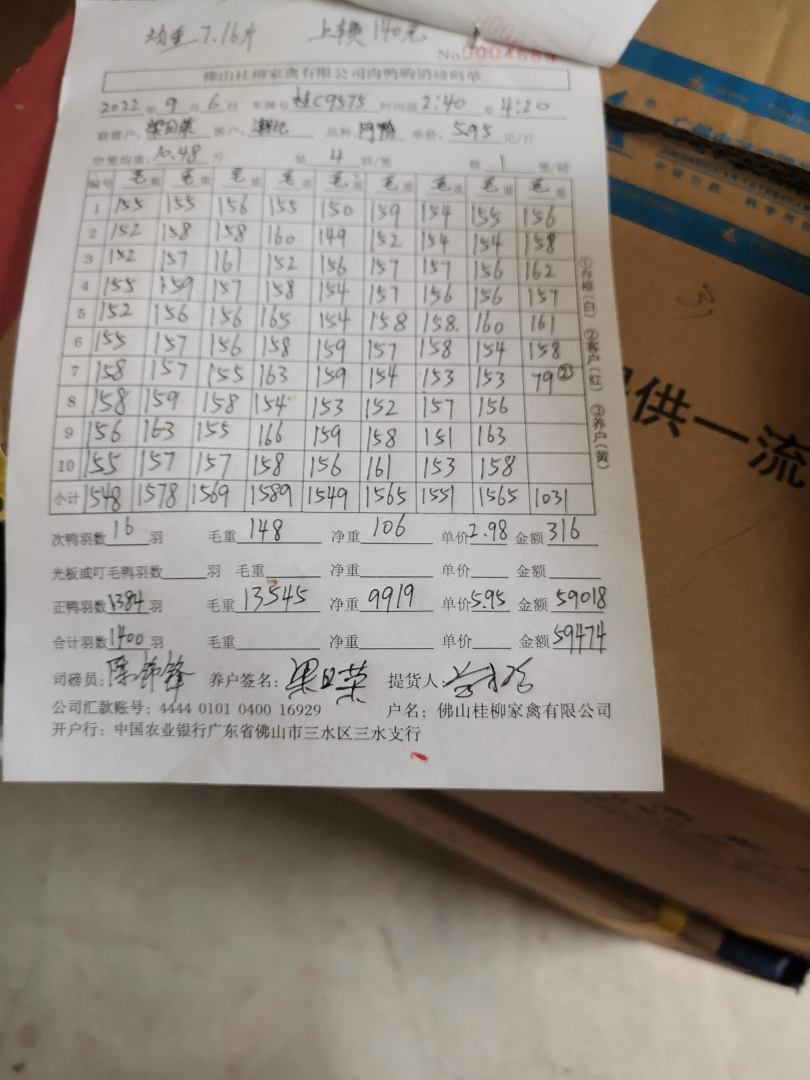 均重 7.16斤 上车费 140元
No
佛山桂柳家禽有限公司肉鸭购销磅码单
2022年9月6日 车牌号 桂C9575 时间段 2:40 至 4:20
客户: 品种: 单价: 5.95 元/斤
空笼均重: 10.48 斤 装 4 羽/笼 1 笼/磅
编号 毛重 毛重 毛重 毛重 毛重 毛重 毛重 毛重 毛重
1 155 155 156 155 150 159 154 155 156
2 152 158 158 160 149 152 154 154 158
3 152 157 161 152 156 157 157 156 162
4 155 159 157 158 154 157 156 156 157
5 152 156 156 165 154 158 158. 160 161
6 155 157 156 158 159 157 158 154 158
7 158 157 155 163 159 154 153 153 79②
8 158 159 158 154 153 152 157 156
9 156 163 155 166 159 158 151 163
10 155 157 157 158 156 161 153 158
小计 1548 1578 1569 1589 1549 1565 1551 1565 1031
①存根(白) ②客户(红) ③养户(黄)
次鸭羽数 16 羽 毛重 148 净重 106 单价 2.98 金额 316
光板或叮毛鸭羽数 羽 毛重 净重 单价 金额
正鸭羽数 1384 羽 毛重 13545 净重 9919 单价 5.95 金额 59018
合计羽数 1400 羽 毛重 净重 单价 金额 59474
司磅员: 陈锦锋 养户签名: 梁日荣 提货人:
公司汇款账号: 4444 0101 0400 16929 户名: 佛山桂柳家禽有限公司
开户行: 中国农业银行广东省佛山市三水区三水支行
供一流